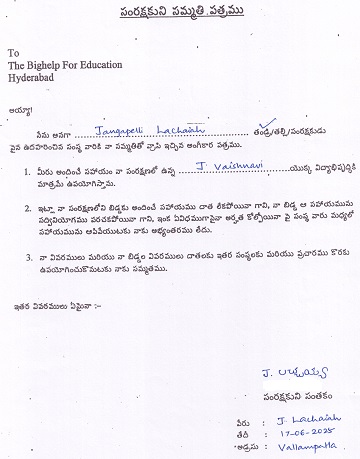 సంరక్షకుని సమ్మతి పత్రము
To
The Bighelp For Education
Hyderabad
అయ్యా!
నేను అనగా Jangapelli Lachaiah తండ్రి/తల్లి/సంరక్షకుడు
పైన ఉదహరించిన సంస్థ వారికి నా సమ్మతితో వ్రాసి ఇచ్చిన అంగీకార పత్రము.
1. మీరు అందించే సహాయం నా సంరక్షణలో ఉన్న J. Vaishnavi యొక్క విద్యాభివృద్ధికి
మాత్రమే ఉపయోగిస్తాను.
2. ఇట్లా నా సంరక్షణలోని బిడ్డకు అందించే సహాయము దాత లేకపోయినా గాని, నా బిడ్డ ఆ సహాయమును
సద్వినియోగము పరచకపోయినా గాని, ఇంక ఏవిధముగానైనా అర్హత కోల్పోయినా పై సంస్థ వారు మధ్యలో
సహాయమును ఆపివేయుటకు నాకు అభ్యంతరము లేదు.
3. నా వివరములు మరియు నా బిడ్డల వివరములు దాతలకు ఇతర సంస్థలకు మరియు ప్రచారము కొరకు
ఉపయోగించుకొనుటకు నాకు సమ్మతము.
ఇతర వివరములు ఏమైనా :-
J. లచ్చయ్య
సంరక్షకుని సంతకం
పేరు : J. Lachaiah
తేదీ : 17-06-2025
అడ్రసు : Vallampatla